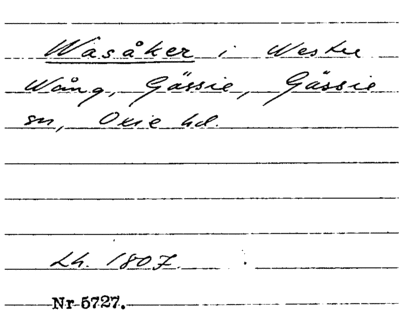 Wasåker i Westre
Wång, Gässie, Gässie
sn, Oxie hd.
Lh. 1807.
Nr 5727.